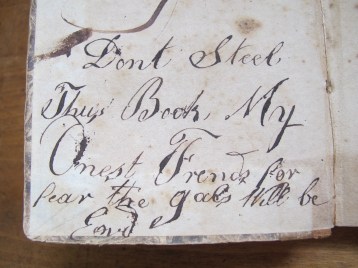 Dont Steel
This Book, My
Onest Frends for
fear the gals Will be
End